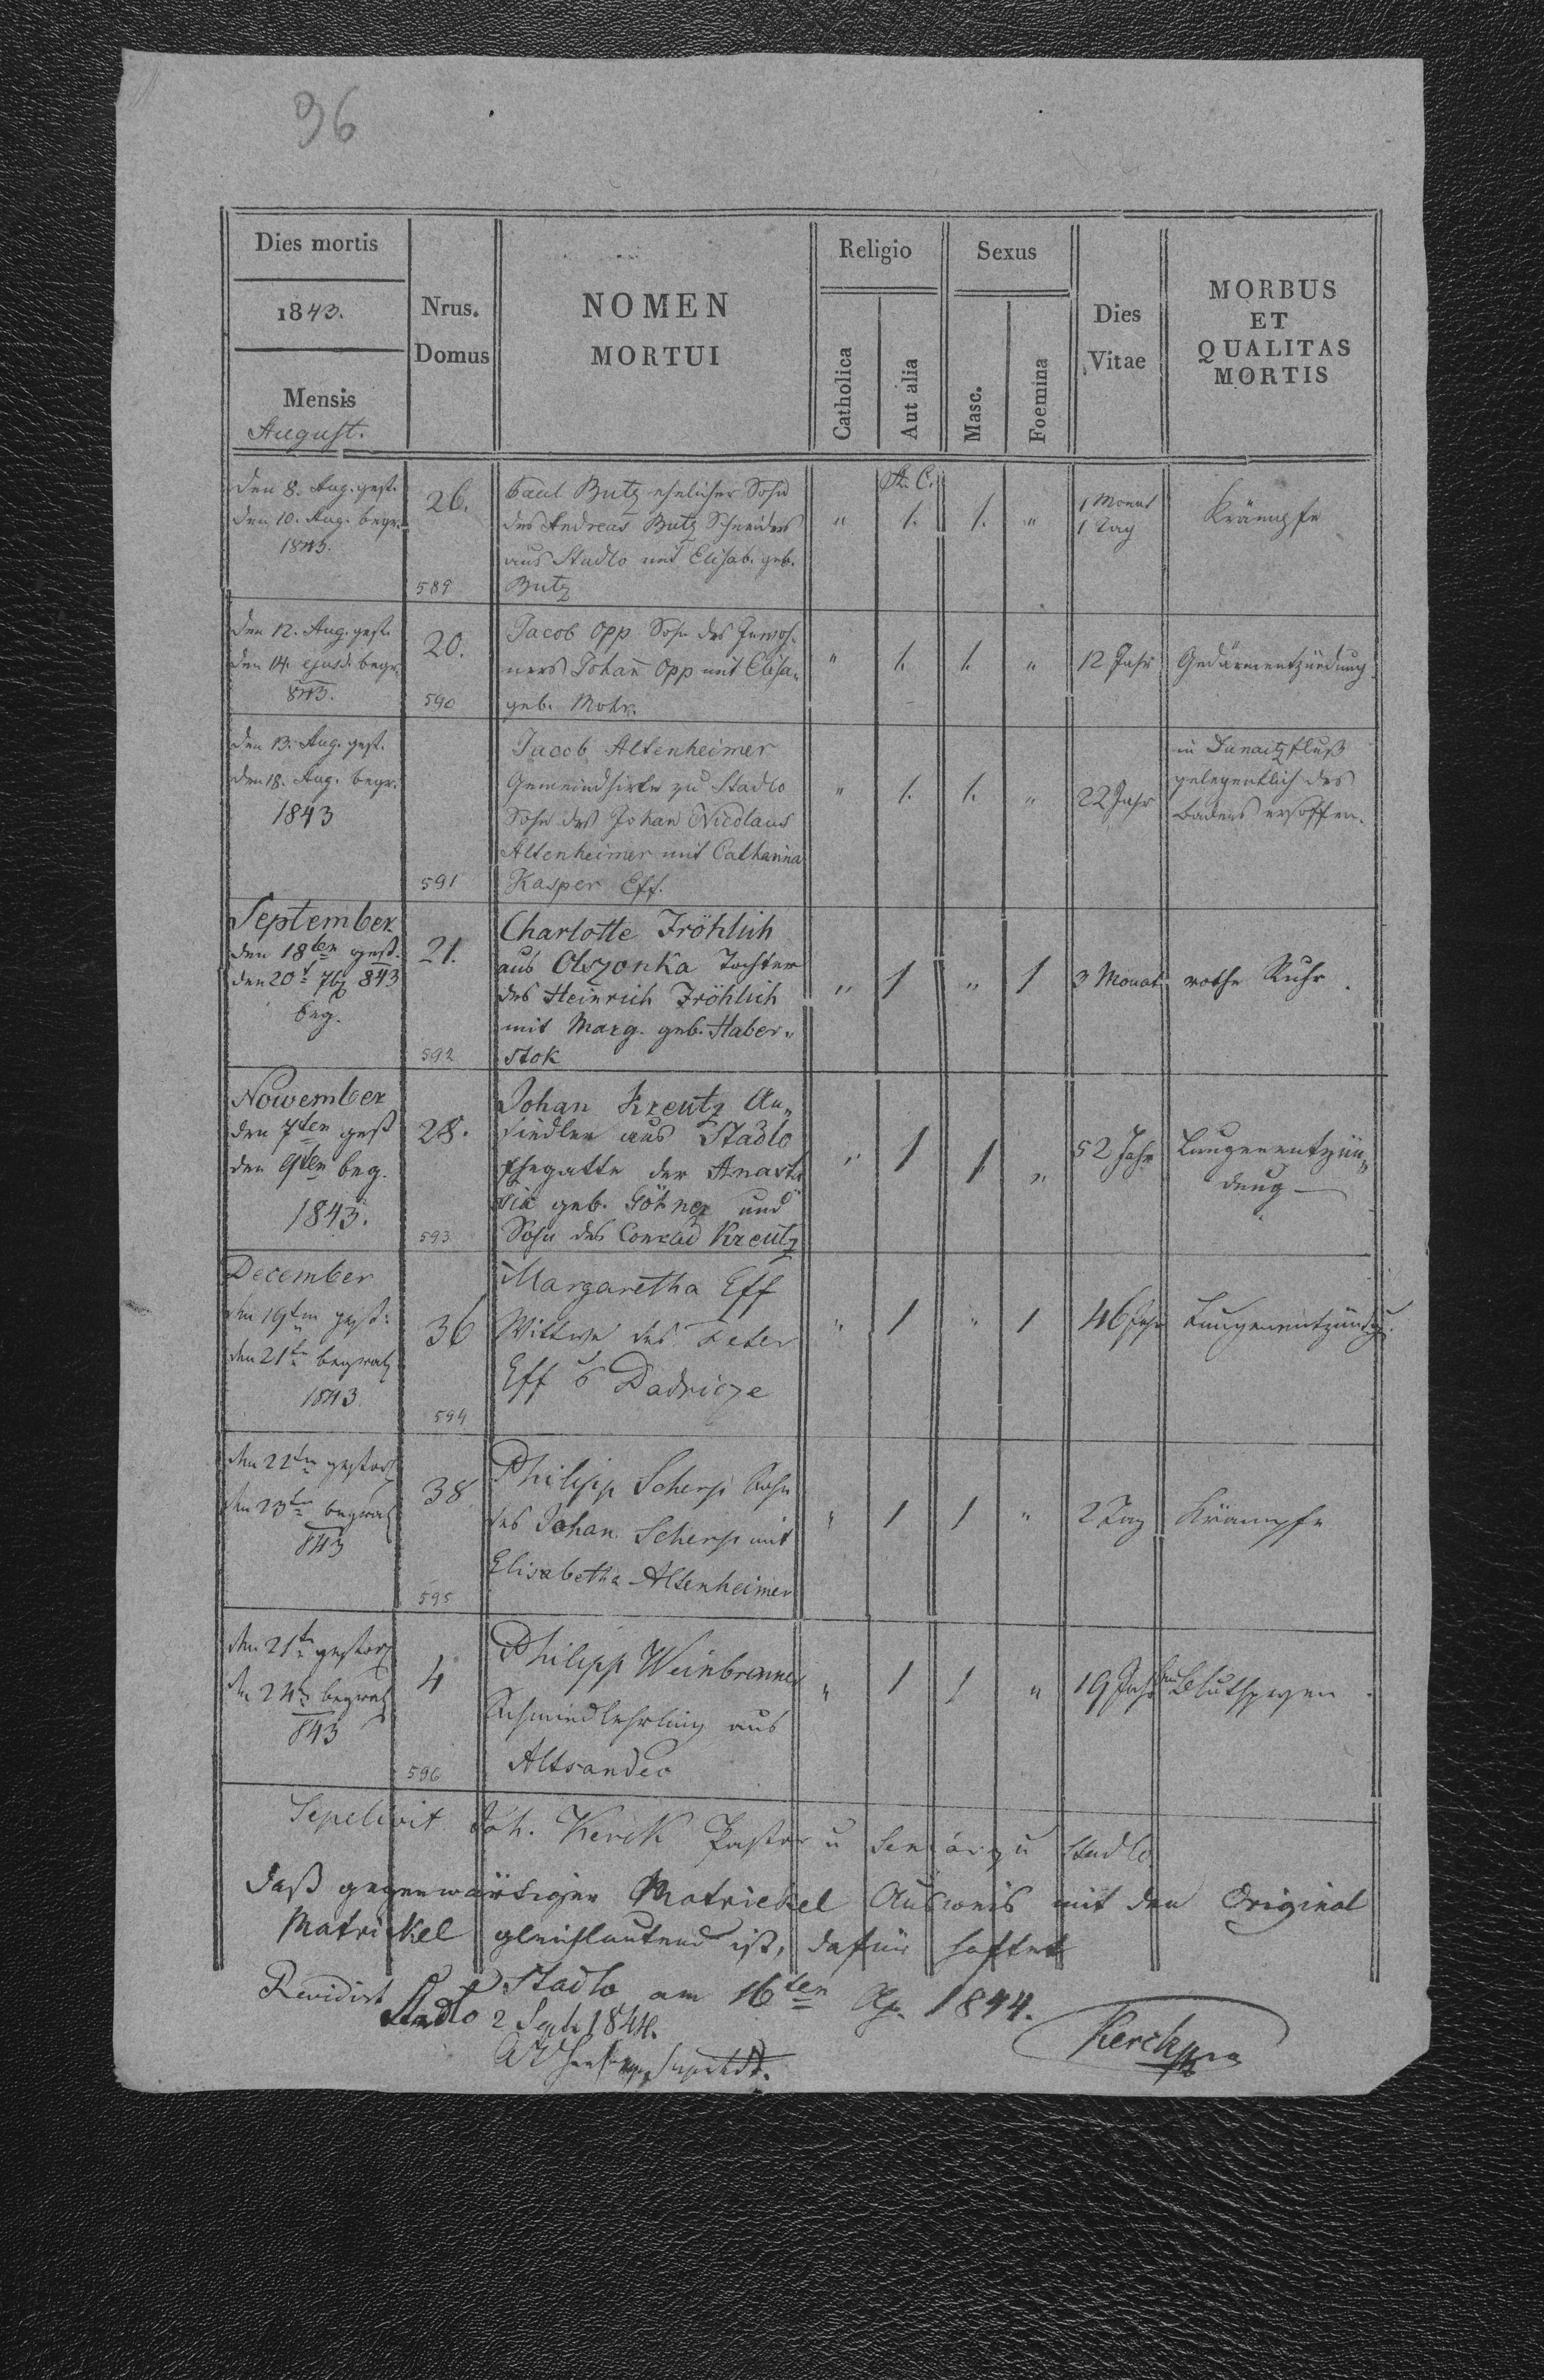 96
Dies mortis
1843.
Mensis
August.
Nrus.
Domus
NOMEN
MORTUI
Religio
Catholica
Aut alia
Sexus
Masc.
Foemina
Dies
Vitae
MORBUS
ET
QUALITAS
MORTIS
den 8. Aug. gest.
den 10. Aug. begr.
1843.
26.
589
Paul Butz ehelicher Sohn
des Andreas Butz Schneiders
aus Stadlo mit Elisab. geb.
Butz
"
A. C.
1.
1.
"
1 Monat
1 Tag
Krämpfe
den 12. Aug. gest.
den 14. ejusd. begr.
843.
20.
590
Jacob Opp Sohn des Inwoh-
ners Johan̄ Opp mit Elisa-
geb. Mohr.
"
1.
1.
"
12 Jahr
Gedärmentzündung.
den 13. Aug. gest.
den 18. Aug. begr.
1843
591
Jacob Altenheimer
Gemeindhirte zu Stadlo
Sohn des Johan Nicolaus
Altenheimer mit Catharina
Kasper Eff.
"
1.
1.
"
22 Jahr
in Dunaitzfluß
gelegentlich des
Badens ersoffen.
September
den 18ten gest.
den 20t 7br 843
beg.
21.
592
Charlotte Fröhlich
aus Olszonka Tochter
des Heinrich Fröhlich
mit Marg. geb. Haber-
stok
"
1
"
1
3 Monat
rothe Ruhr.
Nowember
den 7ten gest
den 9ten beg.
1843.
28.
593
Johan Kreutz An-
siedler aus Stadlo
Ehegatte der Anasta
sia geb. Göhner und
Sohn des Conrad Kreutz
"
1
1
"
52 Jahr
Lungenentzün-
dung —
December
den 19ten gest:
den 21ten begrab
1843
36
594
Margaretha Eff
Wittwe des Peter
Eff Dadricze
"
1
"
1
46 Jahr
Lungenentzündg.
den 22ten gestorb
den 23ten begrab
843
38
595
Philipp Scherp Sohn
des Johan Scherp mit
Elisabetha Altenheimer
"
1
1
"
2 Tag
Krämpfe
den 21ten gestorb
den 24ten begrab
843
4
596
Philipp Weinbrenner
Schmiedlehrling aus
Altsandec
"
1
1
"
19 Jahr
Blutspeyen
Sepelivit Joh. Kerck Pastor u Senior zu Stadlo
Daß gegenwärtiger Matrickel Ausweis mit den Original
Matrickel gleichlautend ist, dafür haftet
Stadlo am 16ten Ap. 1844.
Revidirt
Stadlo 2 Sept 1844.
Supdt.
Kerck